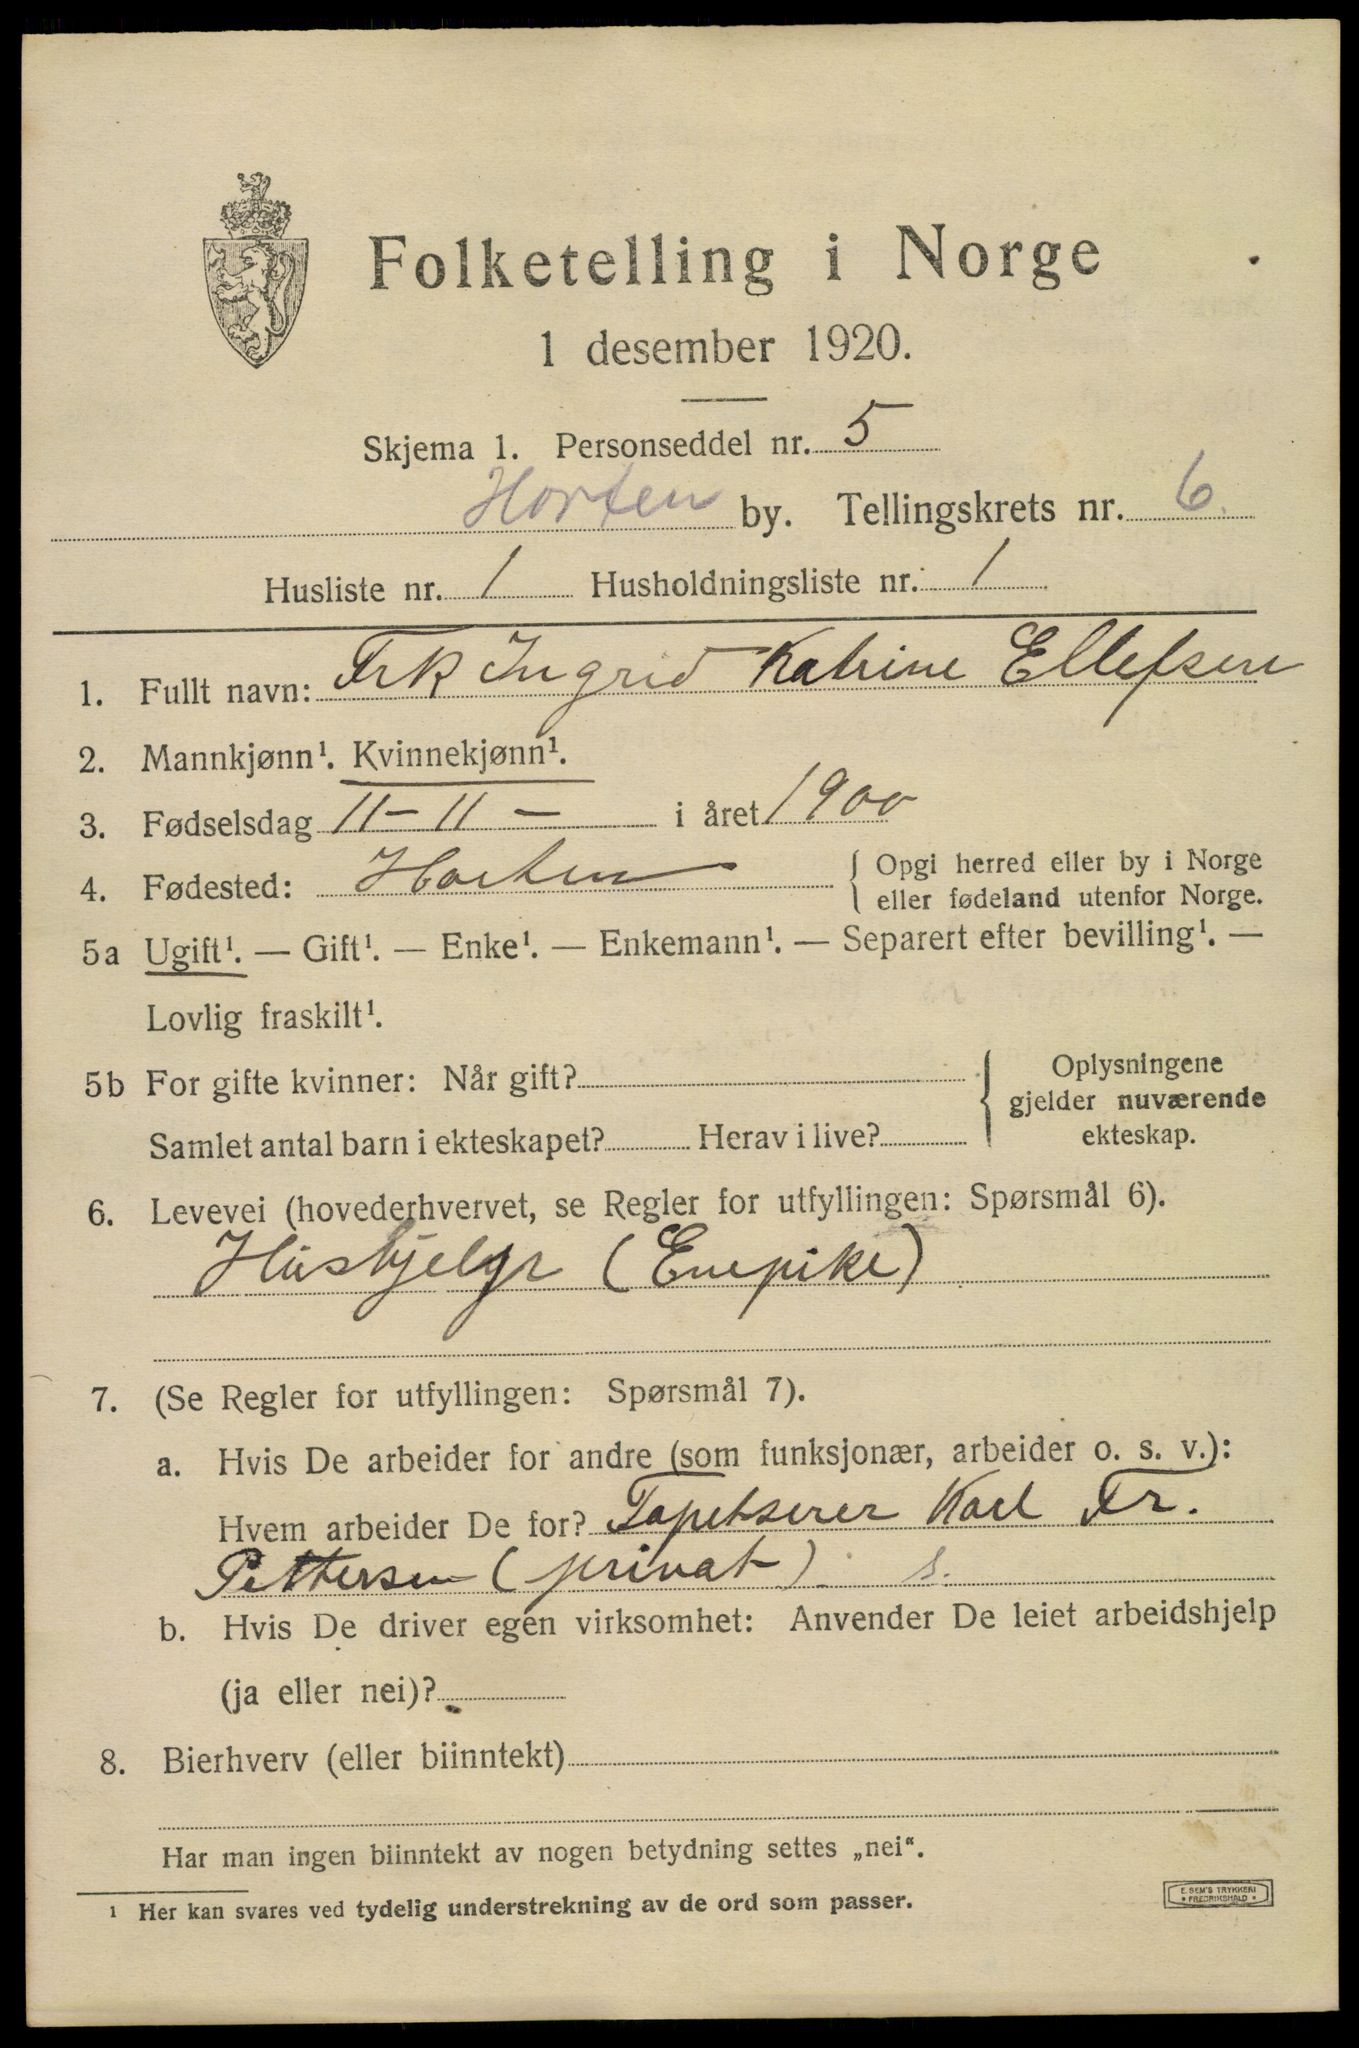 Folketelling i Norge
1 desember 1920.
Skjema 1. Personseddel nr. 5
Horten by. Tellingskrets nr. 6.
Husliste nr. 1 Husholdningsliste nr. 1
1. Fullt navn: Frk Ingrid Katrine Ellefsen
2. Mannkjønn¹. Kvinnekjønn¹.
3. Fødselsdag 11-11- i året 1900
4. Fødested: Horten { Opgi herred eller by i Norge
eller fødeland utenfor Norge.
5a Ugift¹. — Gift¹. — Enke¹. — Enkemann¹. — Separert efter bevilling¹. —
Lovlig fraskilt¹.
5b For gifte kvinner: Når gift? { Oplysningene
gjelder nuværende
Samlet antal barn i ekteskapet? Herav i live? ekteskap.
6. Levevei (hovederhvervet, se Regler for utfyllingen: Spørsmål 6).
Hushjelp (Enepike)
7. (Se Regler for utfyllingen: Spørsmål 7).
a. Hvis De arbeider for andre (som funksjonær, arbeider o. s. v.):
Hvem arbeider De for? Tapetserer Karl Fr.
Pettersen (privat) s.
b. Hvis De driver egen virksomhet: Anvender De leiet arbeidshjelp
(ja eller nei)?
8. Bierhverv (eller biinntekt)
Har man ingen biinntekt av nogen betydning settes „nei“.
¹ Her kan svares ved tydelig understrekning av de ord som passer.
E. SEM'S TRYKKERI
* FREDRIKSHALD *